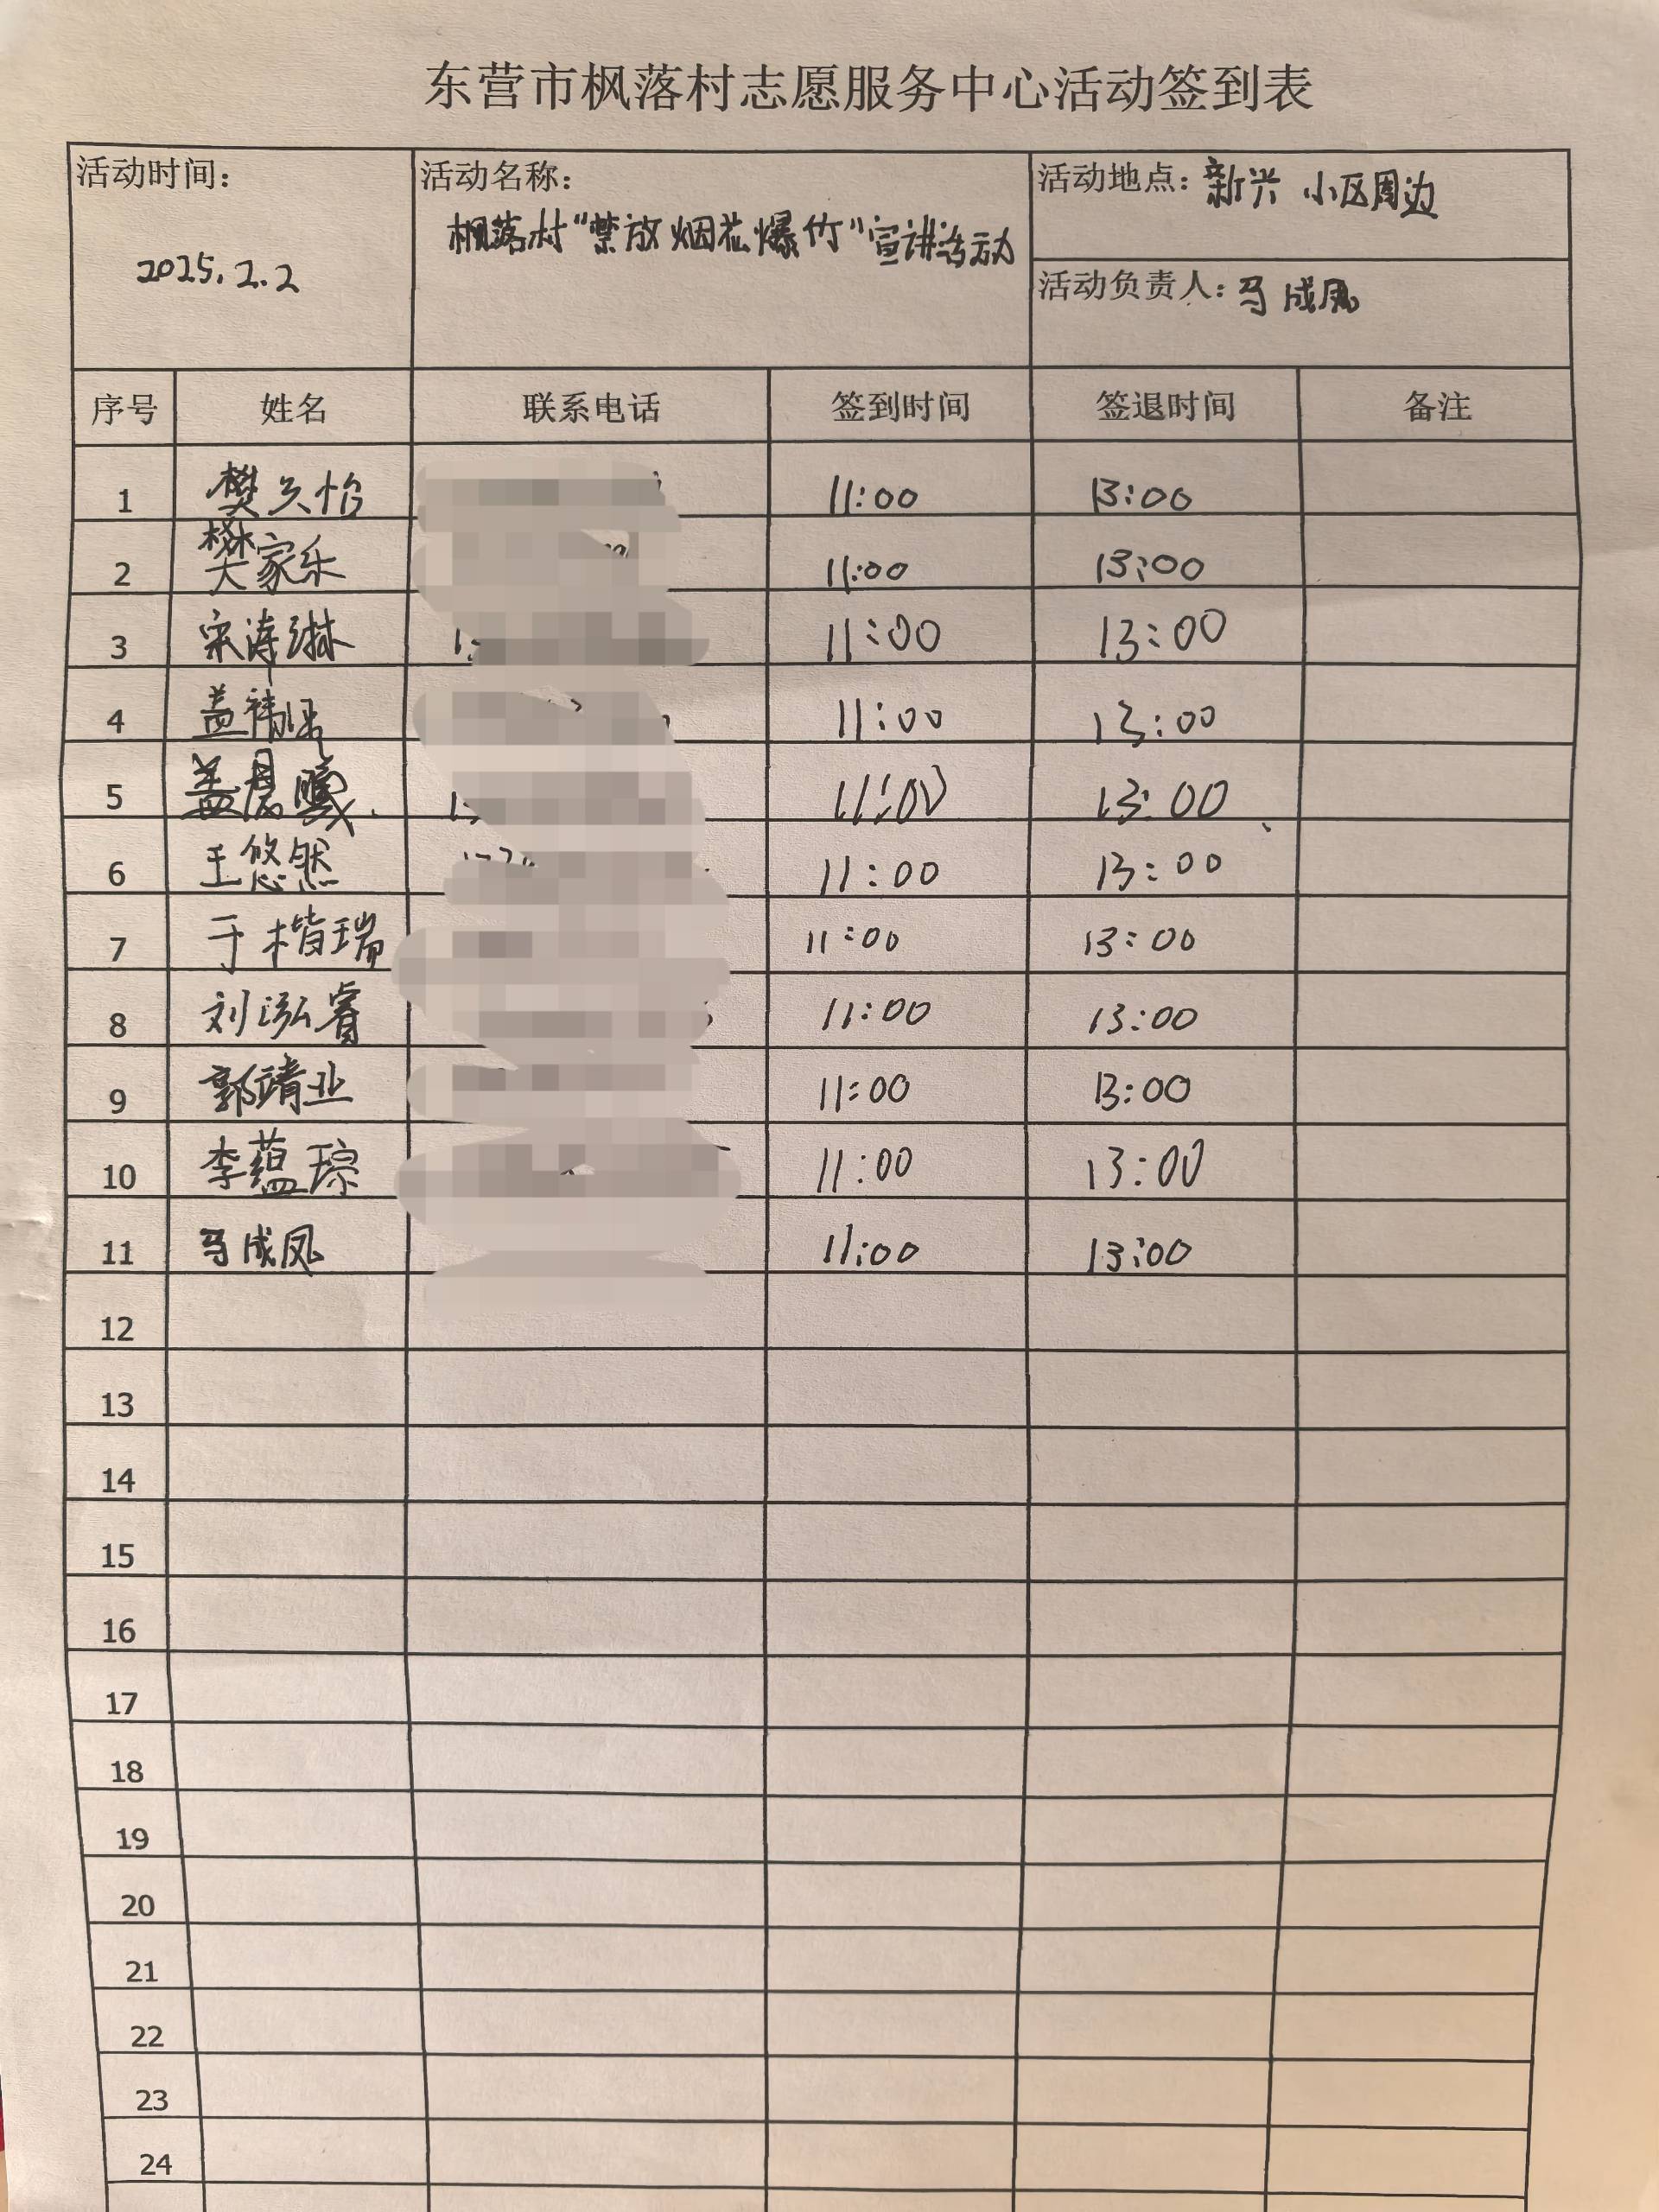 东营市枫落村志愿服务中心活动签到表
活动时间: 2025.2.2
活动名称: 枫落村“禁放烟花爆竹”宣讲活动
活动地点: 新兴小区周边
活动负责人: 马成凤
序号 姓名 联系电话 签到时间 签退时间 备注
1 樊久怡 11:00 13:00
2 樊家乐 11:00 13:00
3 宋涛琳 11:00 13:00
4 盖祎 11:00 13:00
5 盖晨曦 11:00 13:00
6 王悠然 11:00 13:00
7 于楷瑞 11:00 13:00
8 刘泓睿 11:00 13:00
9 郭靖业 11:00 13:00
10 李蕴琮 11:00 13:00
11 马成凤 11:00 13:00
12
13
14
15
16
17
18
19
20
21
22
23
24